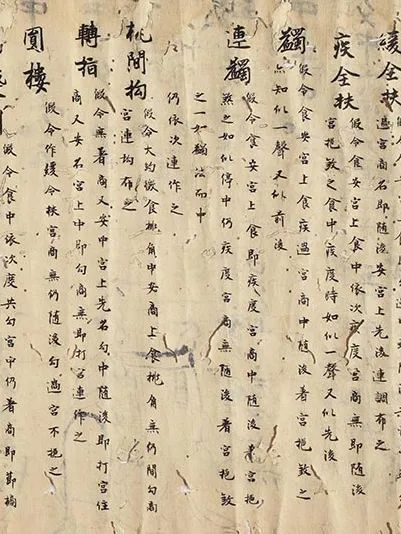 緩全扶
過宮商名即隨後安宮上先後連調布之
疾全扶
假令食安宮上食中依次疾度宮商無即隨後
宮抱敦之食中疾度時如似一聲又似先後
蠲
假令食安宮上食疾過宮商中隨後著宮抱敦之
無知似一聲又似前後
連蠲
假令食安宮上食即疾度宮商中隨後著宮抱
無之如似停中仍疾度宮商無隨後著宮抱敦
之一如蠲法而中
仍依次連作之
桃間拘
假令大灼撥食挑角中安商上食挑角無仍間勾商
宮連拘布之
轉指
假令無著商又安中宮上先名勾中隨後即打宮住
商又安名宮上中即勾商無即打宮連作之
圓摟
假令作緩全扶宮商無仍隨後勾過宮不抱之
假令食中依次度共勾宮中仍著商即節摘